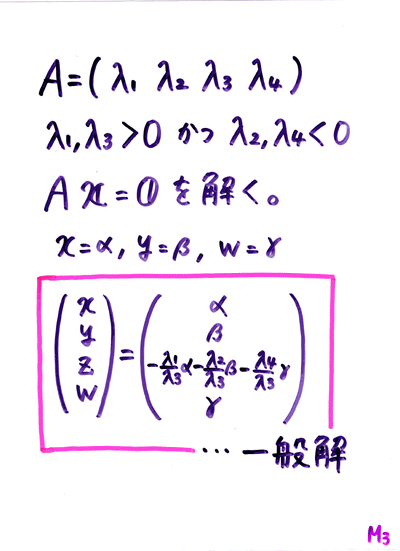 A=(λ₁ λ₂ λ₃ λ₄)
λ₁,λ₃>0 かつ λ₂,λ₄<0
A𝕩=𝟘を解く。
x=α, y=β, w=γ
(x y z w) = (α β -λ₁/λ₃α-λ₂/λ₃β-λ₄/λ₃γ γ)
…一般解
M₃